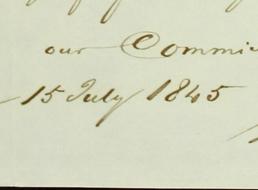 our Commi
15 July 1845